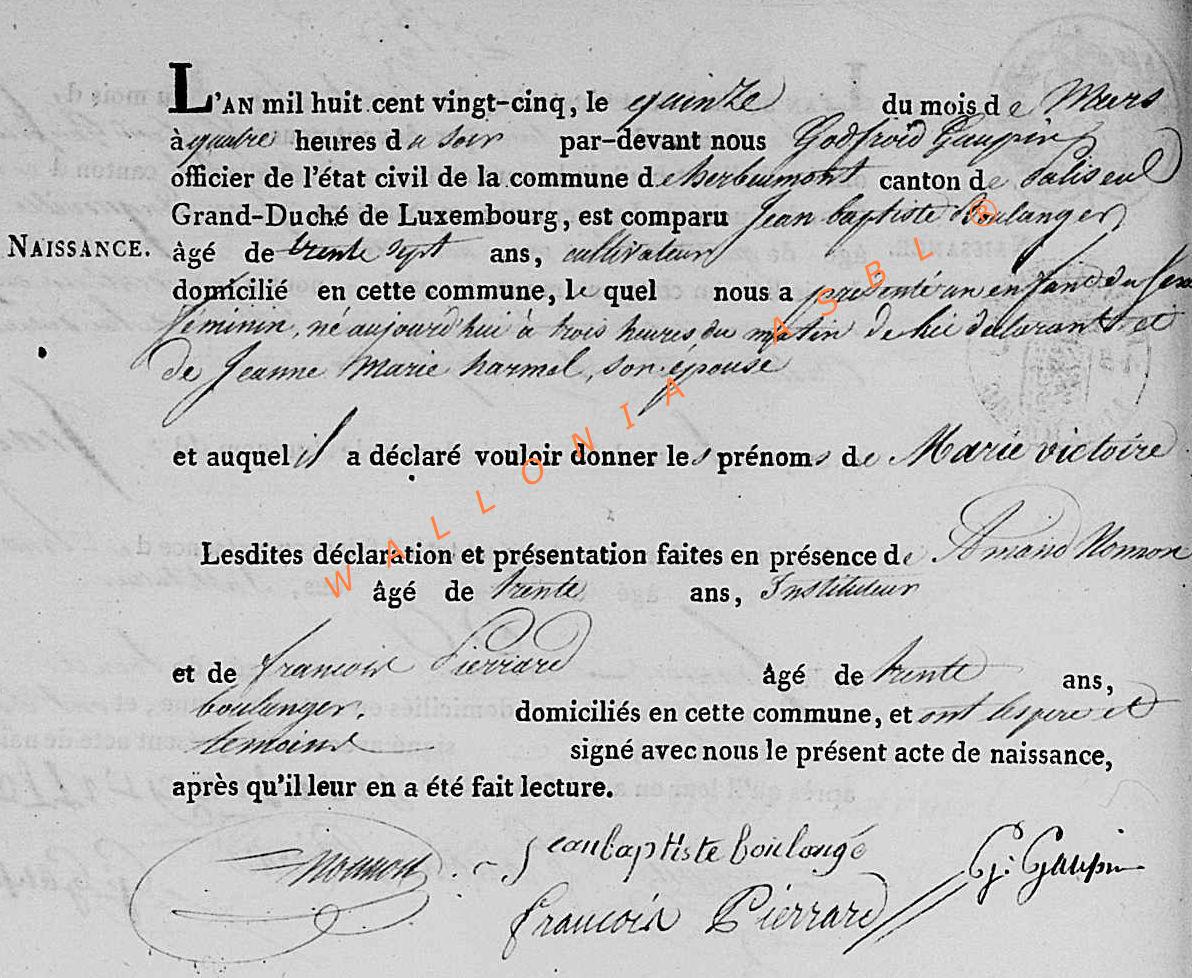 L'AN mil huit cent vingt-cinq, le quinze du mois de Mars
à quatre heures du soir par-devant nous Godfroid Gaupin
officier de l'état civil de la commune de herbeumont canton de Paliseul
Grand-Duché de Luxembourg, est comparu Jean baptiste boulanger
NAISSANCE. âgé de trente sept ans, cultivateur
domicilié en cette commune, le quel nous a présenté un enfant du sexe
féminin, né aujourd'hui à trois heures du matin de lui déclarant et
de Jeanne Marie harmel, son épouse
et auquel il a déclaré vouloir donner les prénoms de Marie victoire
Lesdites déclaration et présentation faites en présence de Amand Nomon
âgé de trente ans, Instituteur
et de francois Pierrard âgé de trente ans,
boulanger. domiciliés en cette commune, et ont les pere et
temoins signé avec nous le présent acte de naissance,
après qu'il leur en a été fait lecture.
Nomon Jean baptiste boulangé G: Gaupin
francois Pierrard
WALLONIA ASBL ®